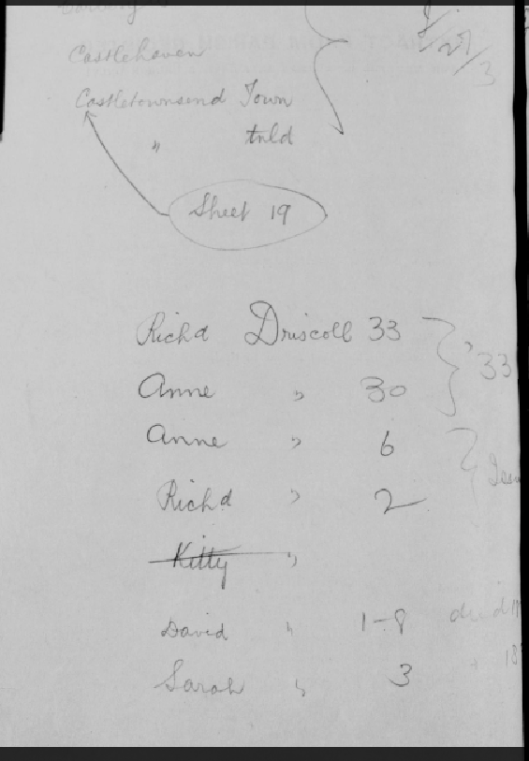 Castlehaven
Castletownsend Town
" tnld
Sheet 19
Richd Driscoll 33
Anne " 30
'33
Anne " 6
Richd " 2
Kitty "
David " 1-8 died
Sarah " 3